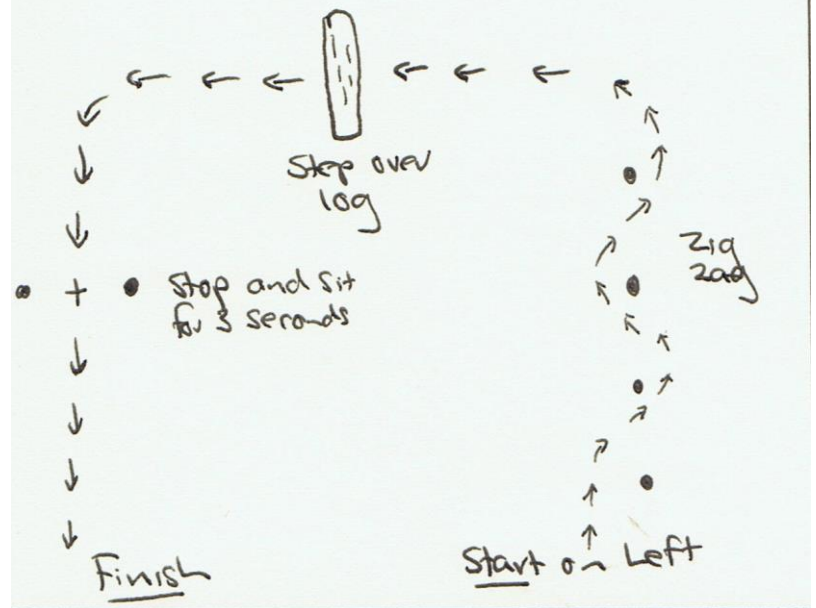 Step over
log
Zig
Zag
Stop and Sit
for 3 seconds
Finish
Start on Left